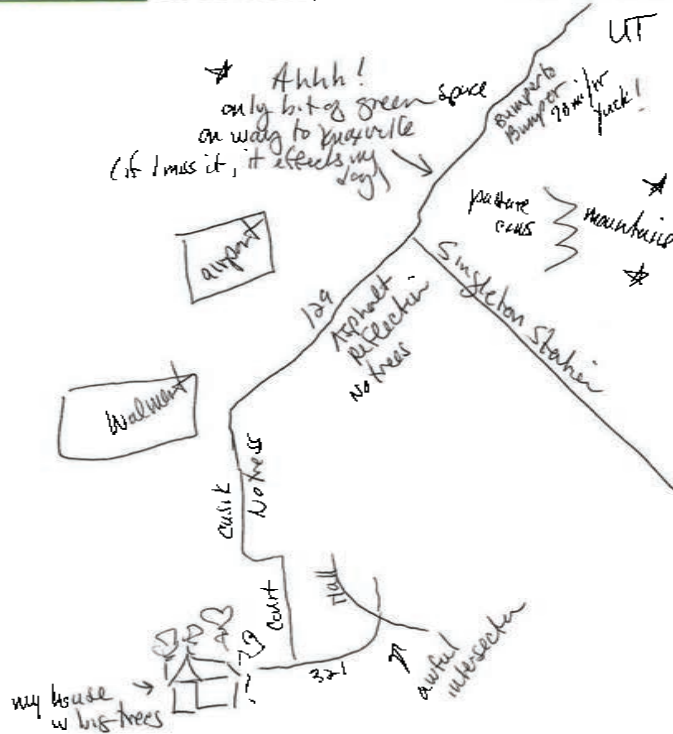 UT
Ahhh!
only bit of green space
on way to Knoxville
(if I miss it, it effects my
day)
Bumper to
Bumper 70 mi/hr
yuck!
pasture
cows
mountains
airport
Singleton Station
129
Asphalt
Reflection
No trees
Walmart
Cusik
No trees
Court
Hall
321
awful
intersection
my house
w big trees